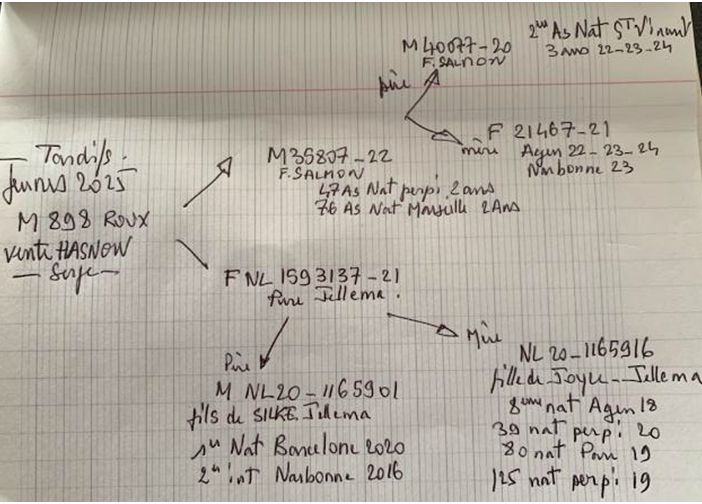 M 40077-20
F. SALMON
2ème As Nat ST Vincent
3 ans 22-23-24
père
F 21467-21
mère
Agen 22-23-24
Narbonne 23
M35807-22
F. SALMON
47 As Nat perpi 2ans
76 As Nat Marseille 2Ans
— Tardifs.
Jeunes 2025
M 898 ROUX
vente HASNOW
— Serge —
F NL 1593137-21
Pure Jellema.
Père
M NL20-1165901
fils de SILKE Jellema
1er Nat Barcelone 2020
2ème int Narbonne 2016
Mère
NL 20-1165916
fille de Joyce-Jellema
8ème nat Agen 18
39 nat perpi 20
80 nat Pau 19
125 nat perpi 19